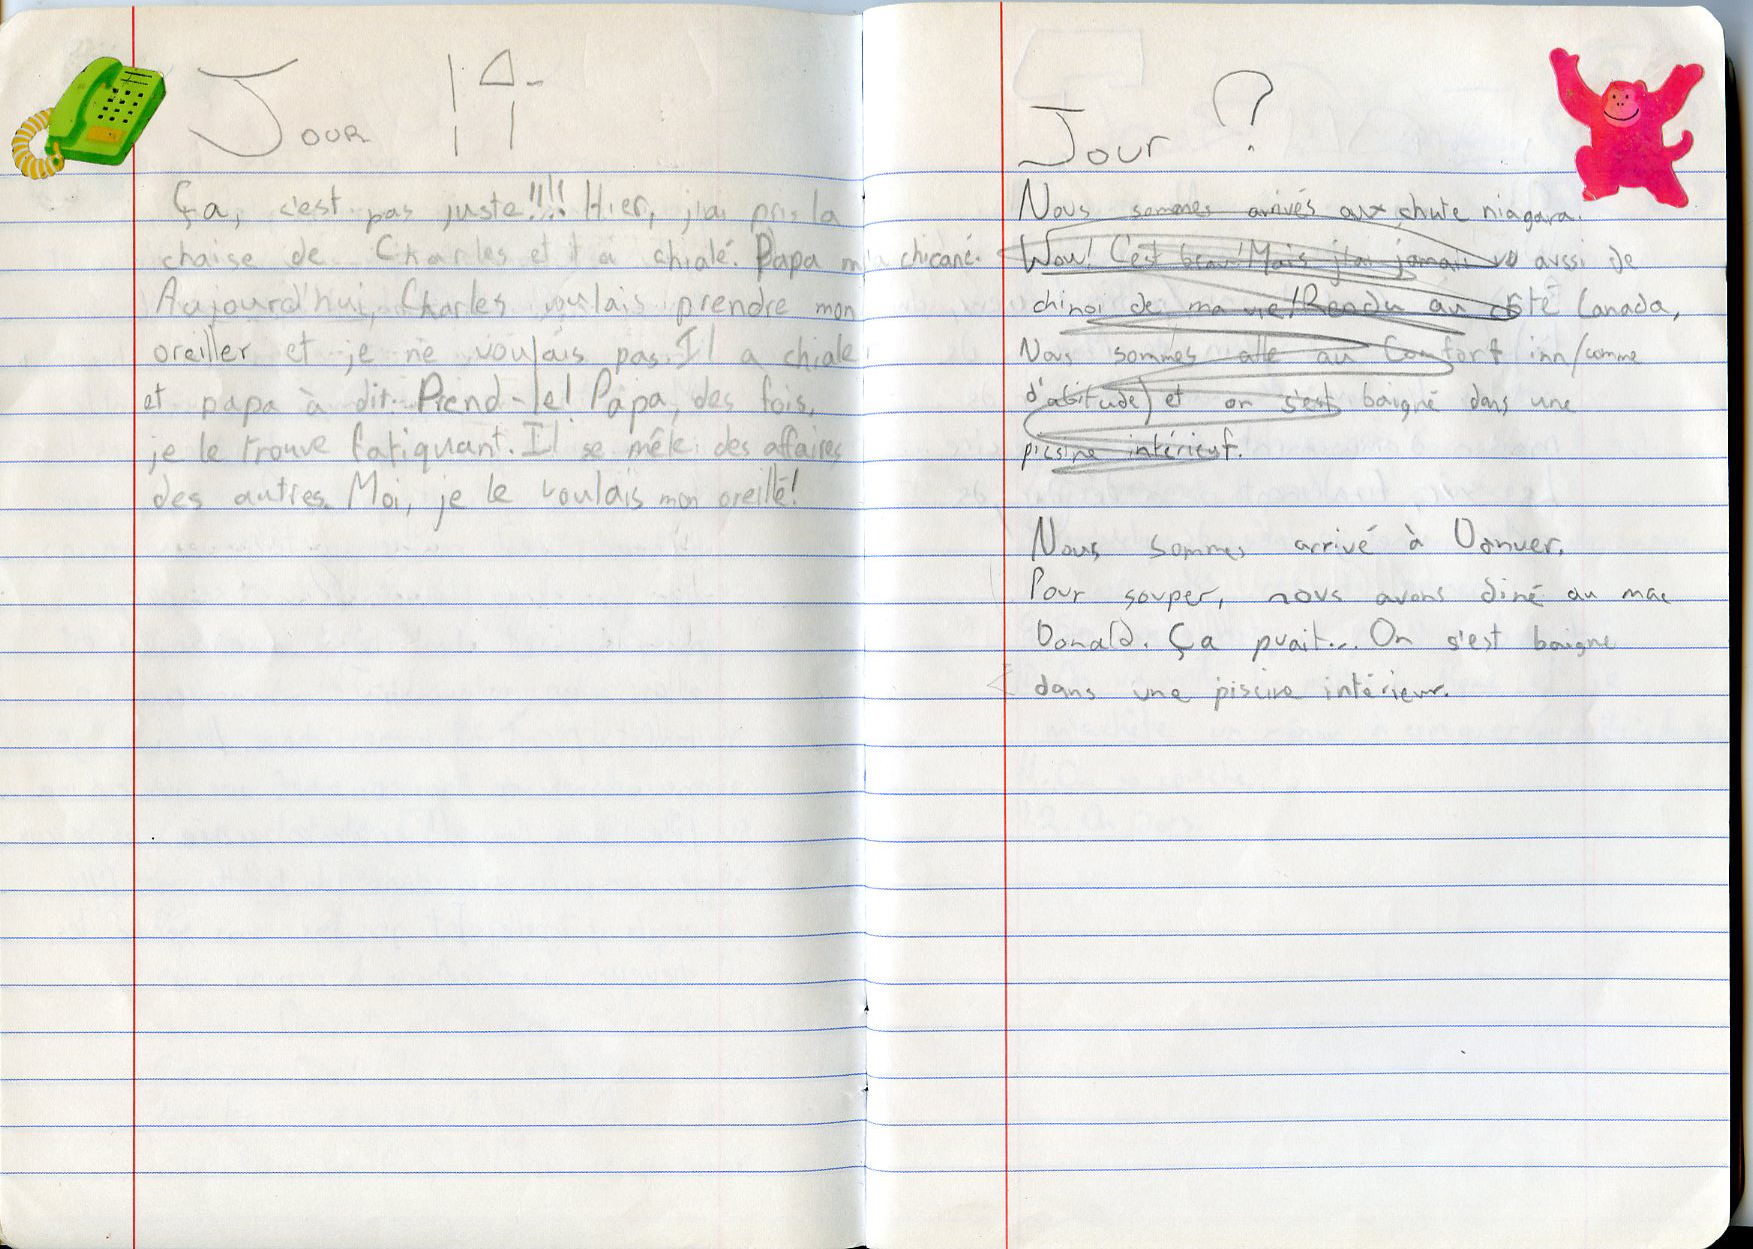 Jour 14
Ça, c'est pas juste!!!! Hier, j'ai pris la
chaise de Charles et il a chialé. Papa m'a chicané.
Aujourd'hui, Charles voulais prendre mon
oreiller et je ne voulais pas. Il a chialé
et papa à dit: Prend-le! Papa, des fois,
je le trouve fatiquant. Il se mêle des affaires
des autres. Moi, je le voulais mon oreillé!
Jour ?
Nous sommes arrivés aux chute niagara.
Wow! C'est beau! Mais j'ai jamais vu aussi de
chinoi de ma vie! Rendu au côté Canada,
Nous sommes allé au Comfort inn (comme
d'abitude) et on s'est baigné dans une
picsine intérieuf.
Nous sommes arrivé à Danver.
Pour souper, nous avons diné au mac
Donald. Ça puait... On s'est baigne
dans une piscine intérieur.